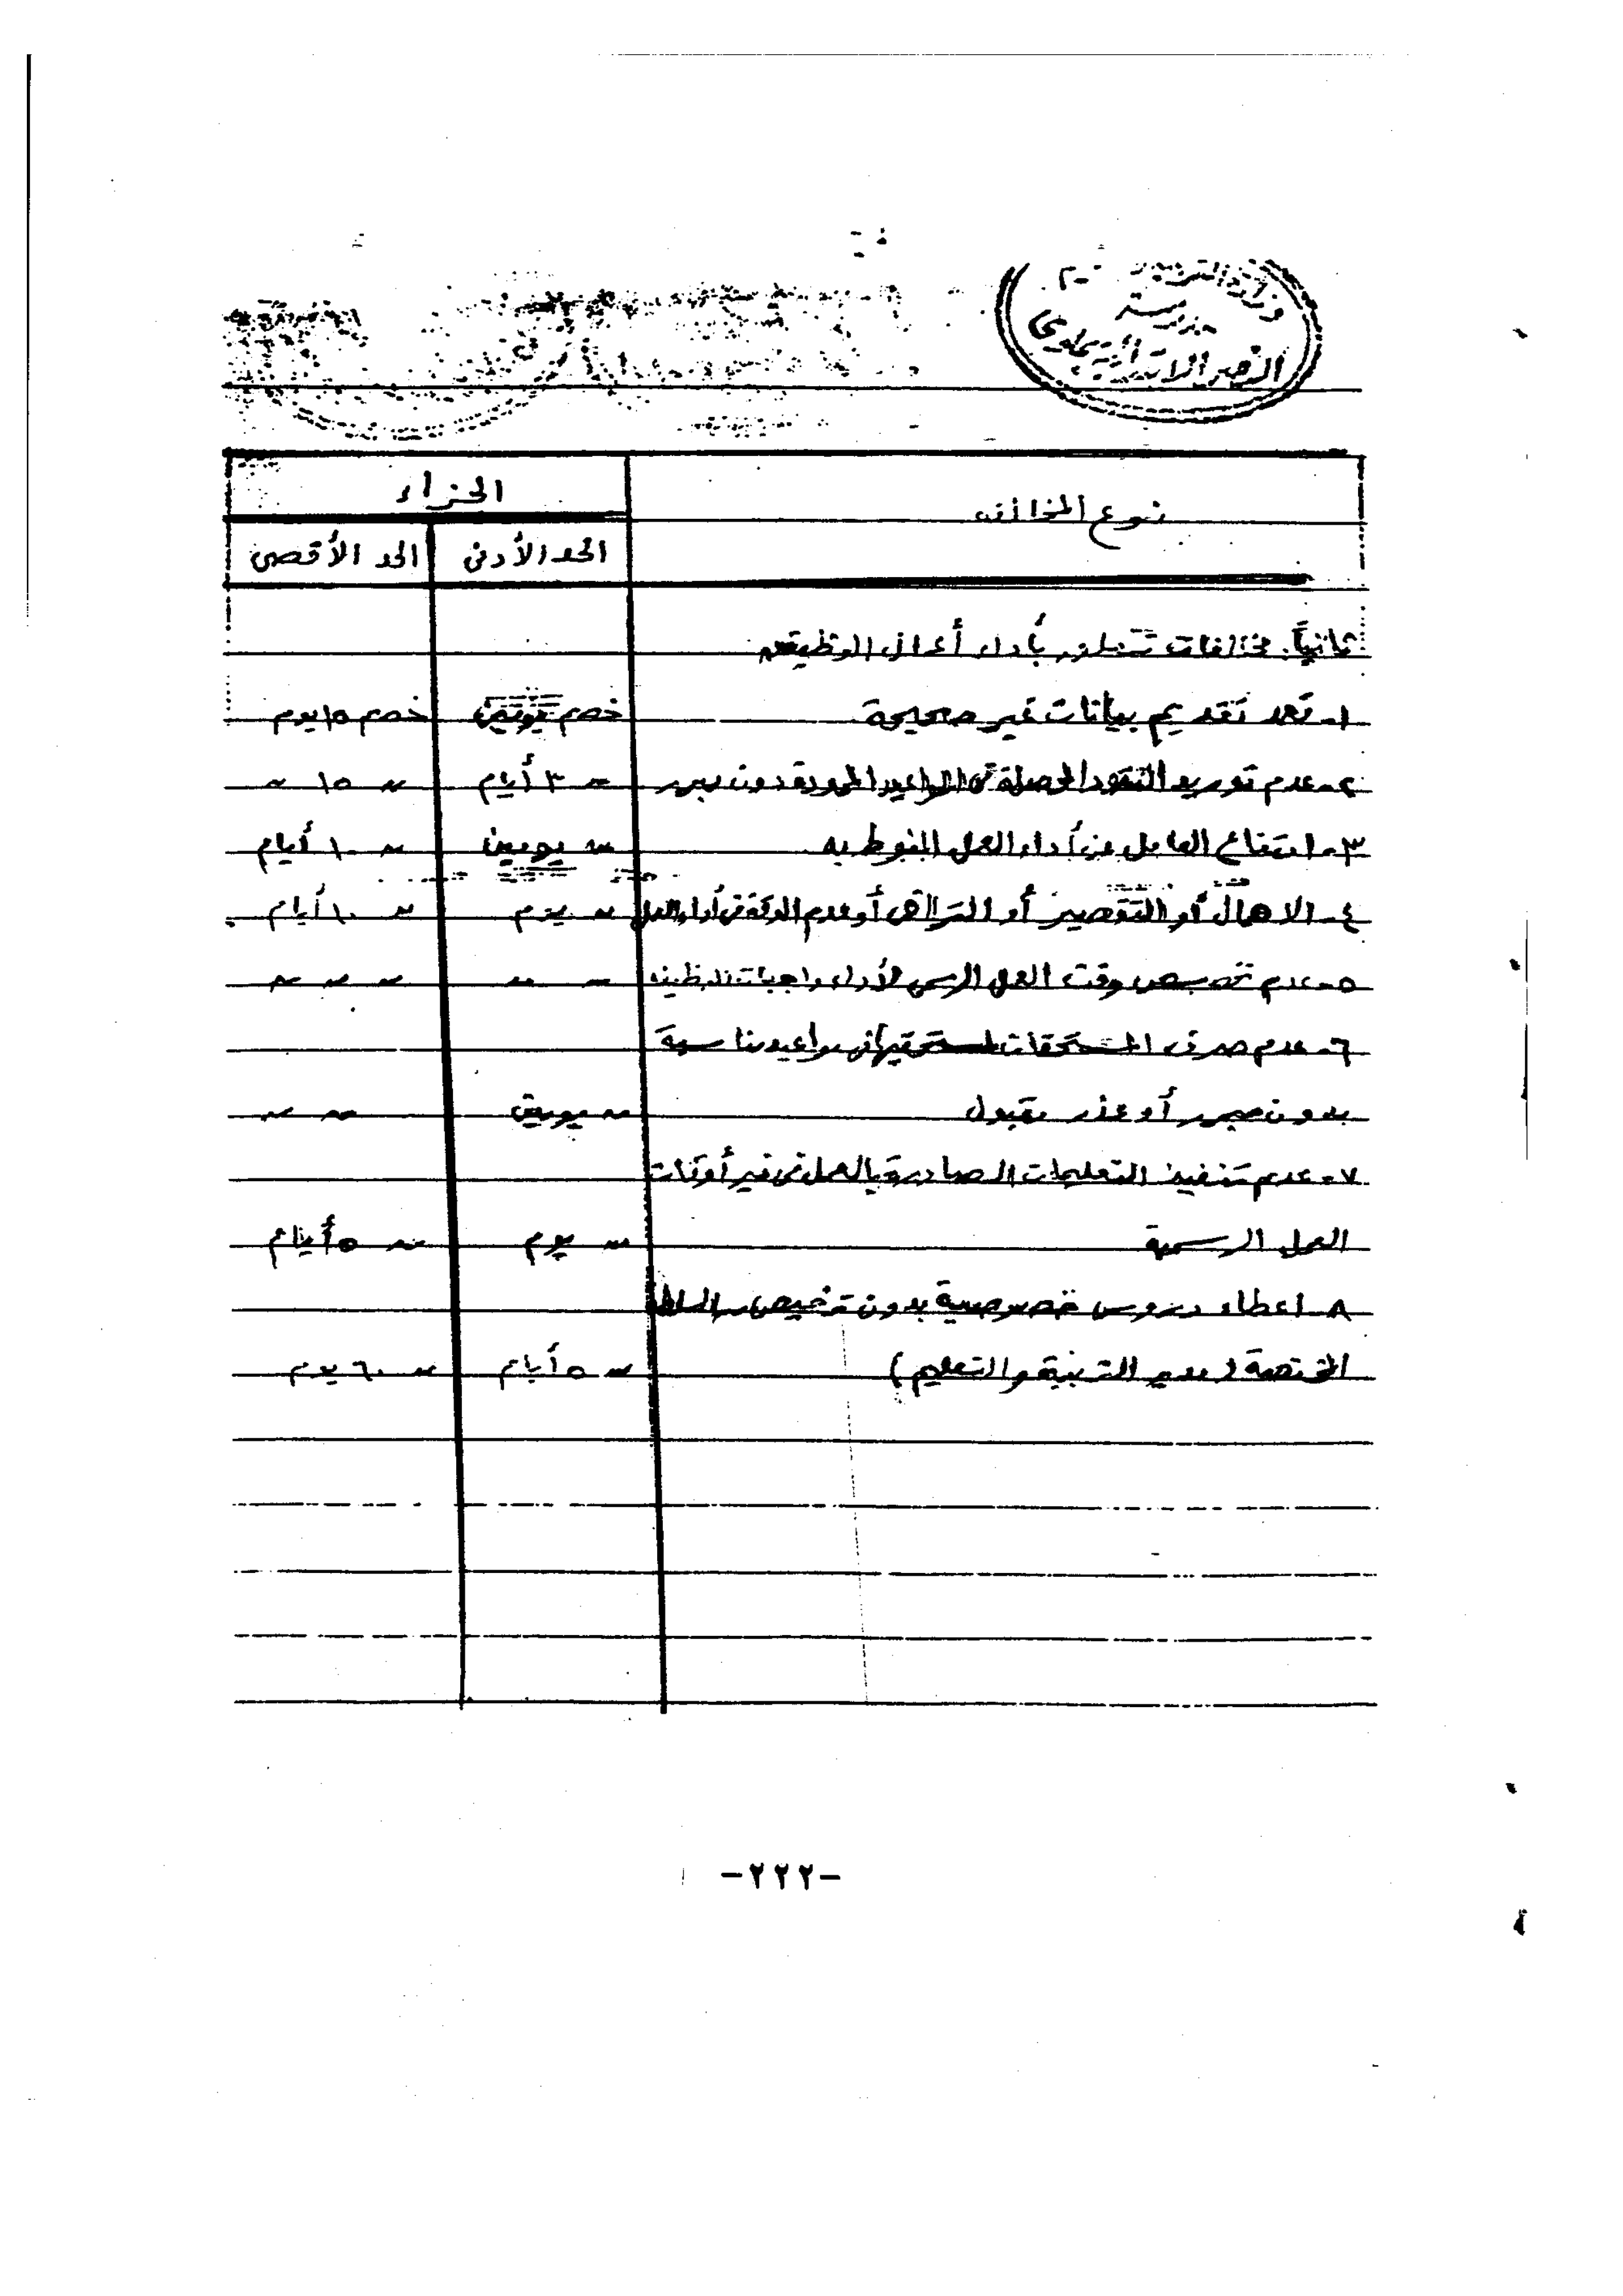 -٢-
وزارة التربية
مدرسة
النصر الابتدائية
الجزاء
نوع المخالفه
الحد الأدنى الحد الأقصى
ثانياً: مخالفات تتعلق بأداء أعمال الوظيفه
١- تعمد تقديم بيانات غير صحيحة خصم يومين خصم ١٥ يوم
٢- عدم توريد النقود المحصلة فى المواعيد المحددة دون مبرر ~ ٣ أيام ~ ١٥ ~
٣- امتناع العامل عن أداء العمل المنوط به ~ يومين ~ ١٠ أيام
٤- الاهمال أو التقصير أو التراخى أو عدم الدقة فى أداء العمل ~ يوم ~ ١٠ أيام
٥- عدم تخصيص وقت العمل الرسمى لأداء واجبات الوظيفه ~ ~ ~ ~ ~
٦- عدم صرف المستحقات لمستحقيها فى مواعيد مناسبة
بدون مبرر أو عذر مقبول ~ يومين ~ ~
٧- عدم تنفيذ التعليمات الصادرة بالعمل فى غير أوقات
العمل الرسمية ~ يوم ~ ٥ أيام
٨- اعطاء دروس خصوصية بدون ترخيص من السلطة
المختصة (مدير التربية والتعليم) ~ ٥ أيام ~ ٦٠ يوم
-٢٢٢-